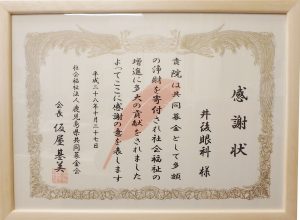 感謝状
井後眼科 様
貴院は共同募金として多額
の浄財を寄付され社会福祉の
増進に多大の貢献をされました
よってここに感謝の意を表します
平成二十八年十月二十七日
社会福祉法人鹿児島県共同募金会
会長